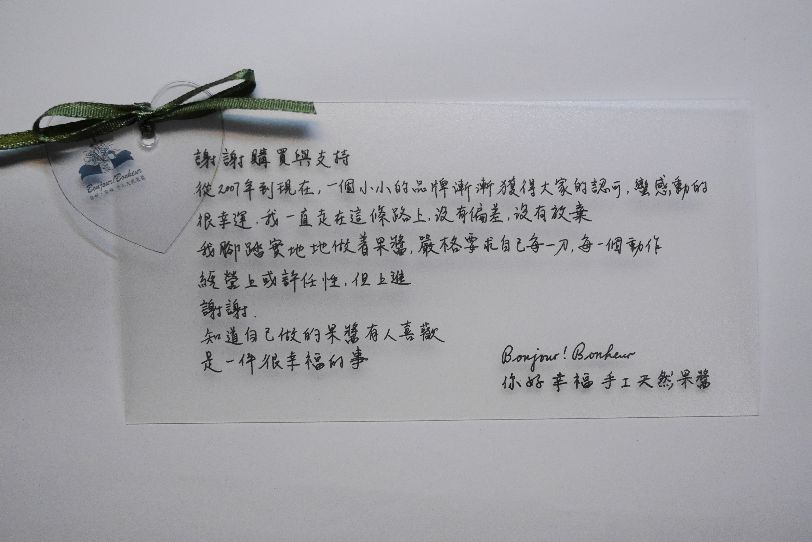 Bonjour! Bonheur
謝謝購買與支持
從2007年到現在,一個小小的品牌漸漸獲得大家的認可,蠻感動的
很幸運,我一直走在這條路上,沒有偏差,沒有放棄
我腳踏實地地做著果醬,嚴格要求自己每一刀,每一個動作
經營上或許任性,但上進
謝謝.
知道自己做的果醬有人喜歡
是一件很幸福的事
Bonjour! Bonheur
你好幸福手工天然果醬